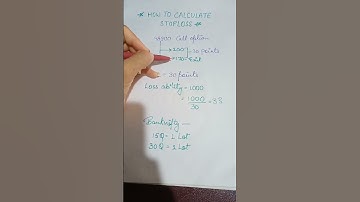 * HOW TO CALCULATE
STOPLOSS *
Call option
200
30 points
170
= 30 points
Loss ability = 1000
= 1000 = 33
30
Banknifty
15Q - 1 Lot
30Q - 2 Lot